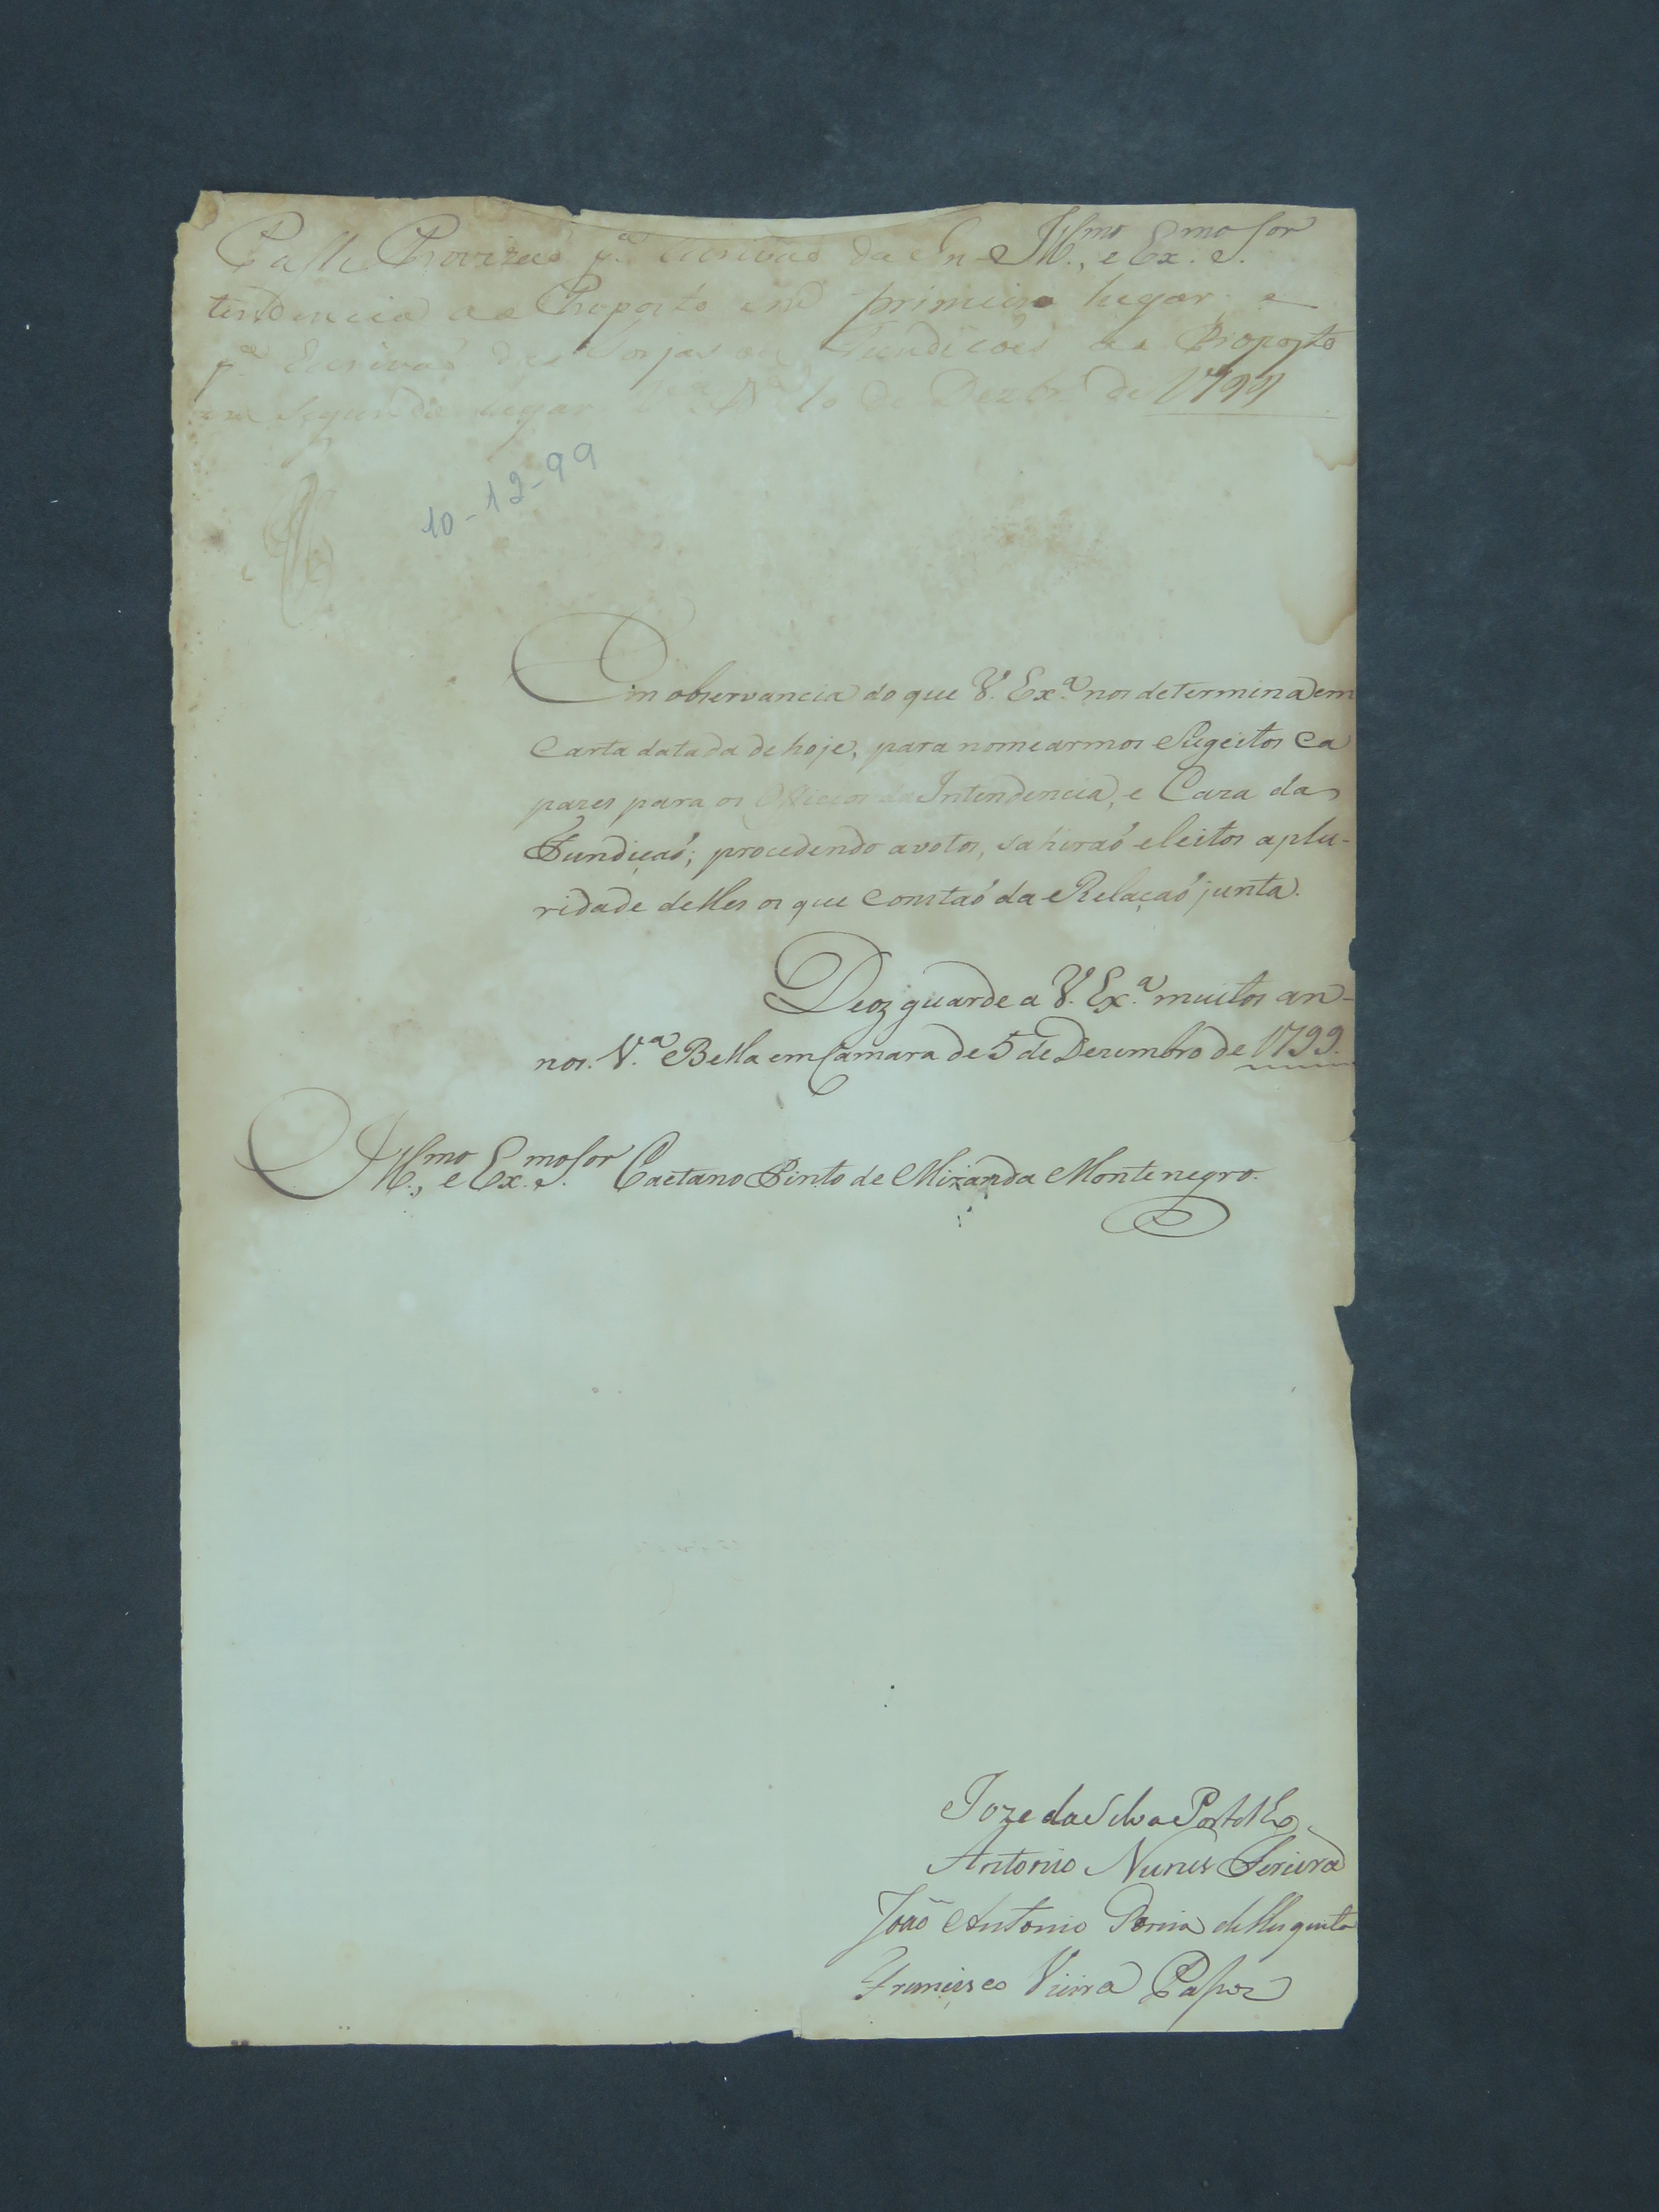 Passe Provizaõ p.ª Escrivaõ da In- Ill.mo, e Ex.mo S.or
tendencia ao Proposto em primeiro lugar, e
p.ª Escrivaõ das Forjas ou Fundicões ao Proposto
em segundo lugar. V.ª B.ª 10 de Dezbr.º de 1799
10-12-99
Em observancia do que V. Ex.ª nos determina em
Carta datada de hoje, para nomearmos Sugeitos Ca
pazes para os Officios da Intendencia, e Caza da
Fundiçaõ; procedendo a votos, sahiraõ eleitos a plu-
ridade delles os que Constaõ da Relaçaõ junta.
Deoz guarde a V. Ex.ª muitos an-
nos. V.ª Bella em Camara de 5 de Dezembro de 1799.
Ill.mo, e Ex.mo S.or Caetano Pinto de Miranda Montenegro.
Joze da Silva
Antonio Nunes Pereira
Joaõ Antonio de Mesquita
Francisco Vieira Passos